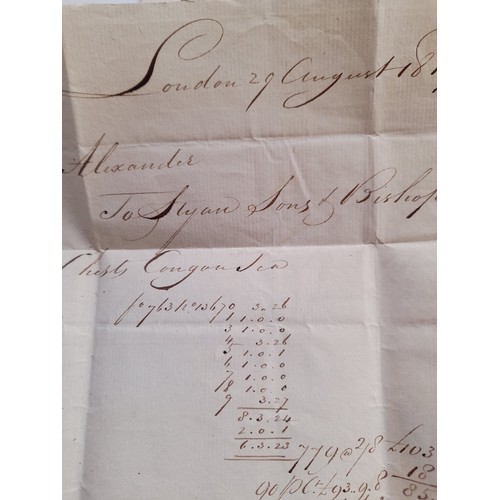 London 29 August 181
Alexander
To Styan Sons & Bishop
Chests Congou Tea
fo 763 No 13670 3.26
1 1.0.0
3 1.0.0
4 3.26
5 1.0.1
6 1.0.0
7 1.0.0
8 1.0.0
9 3.27
8.3.24
2.0.1
6.3.23 779 @ 2/8 £103
18
90 P Ct £93.9.8